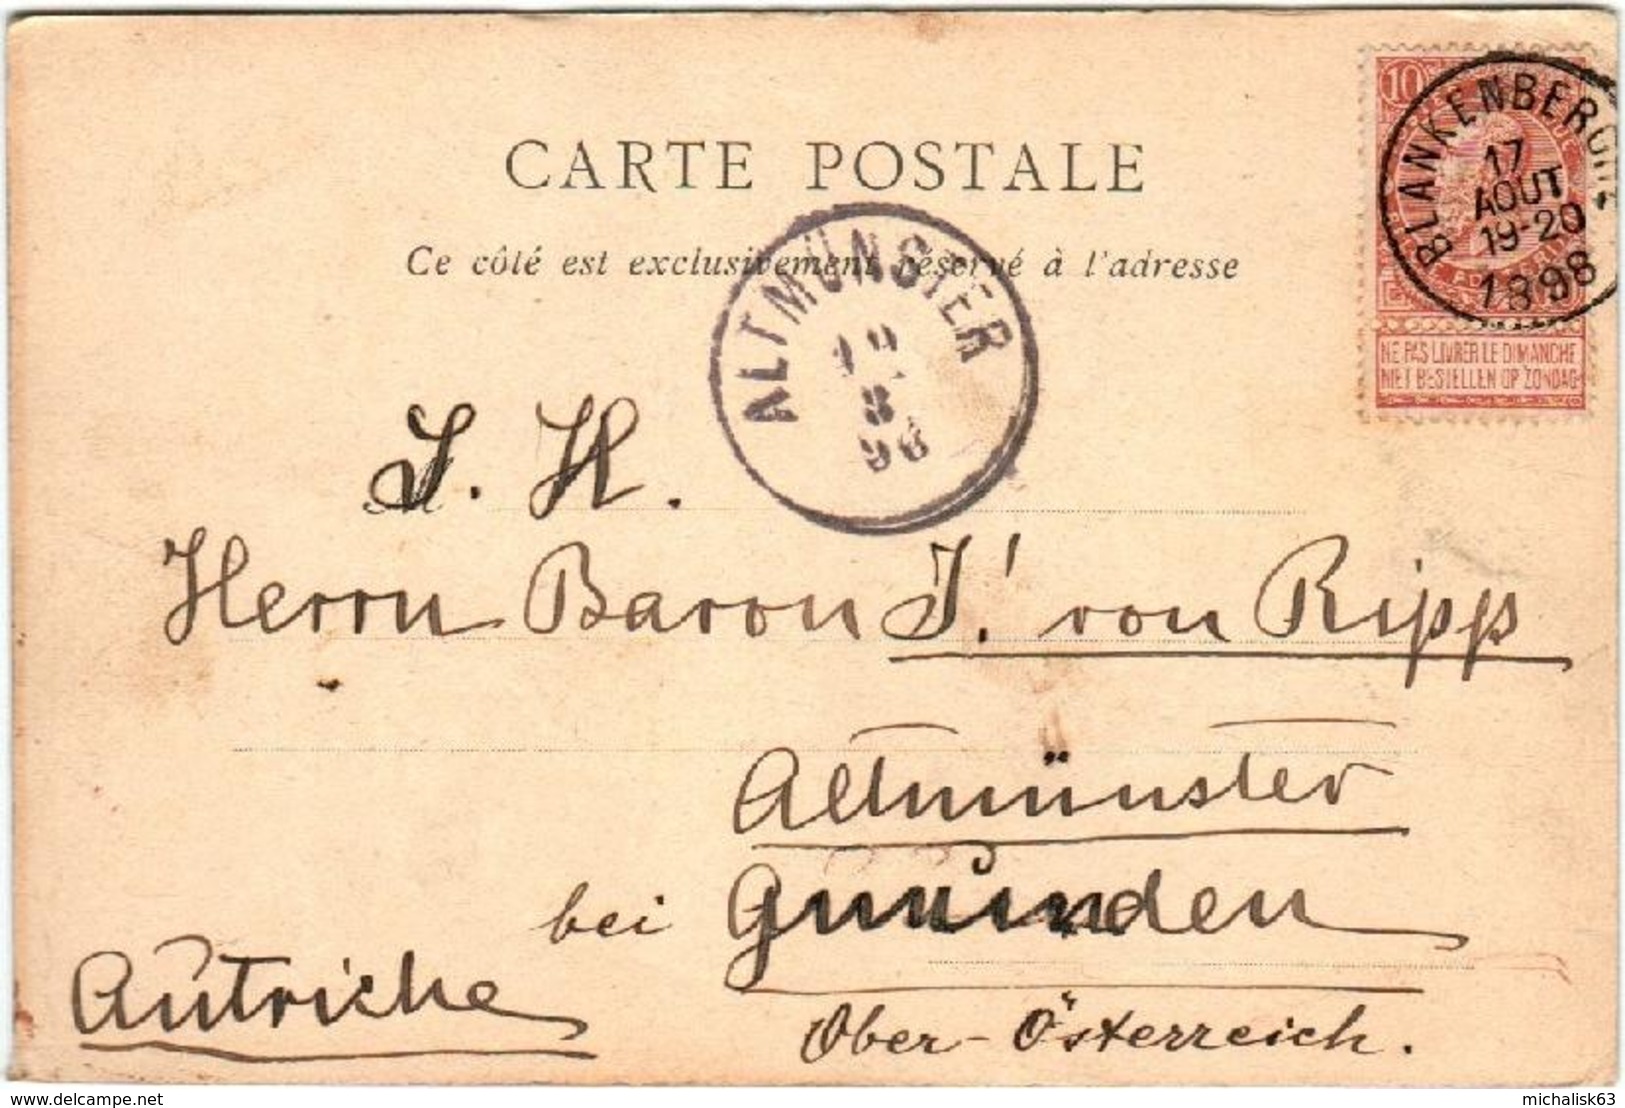 CARTE POSTALE
Ce côté est exclusivement réservé à l'adresse
10
BLANKENBERGHE
17
AOUT
19-20
1898
NE PAS LIVRER LE DIMANCHE
NIET BESTELLEN OP ZONDAG
ALTMÜNSTER
19
8
98
S. H.
Herrn Baron J! von Ripp
Altmünster
bei Gmunden
Autriche
Ober-Österreich.
www.delcampe.net
michalisk63